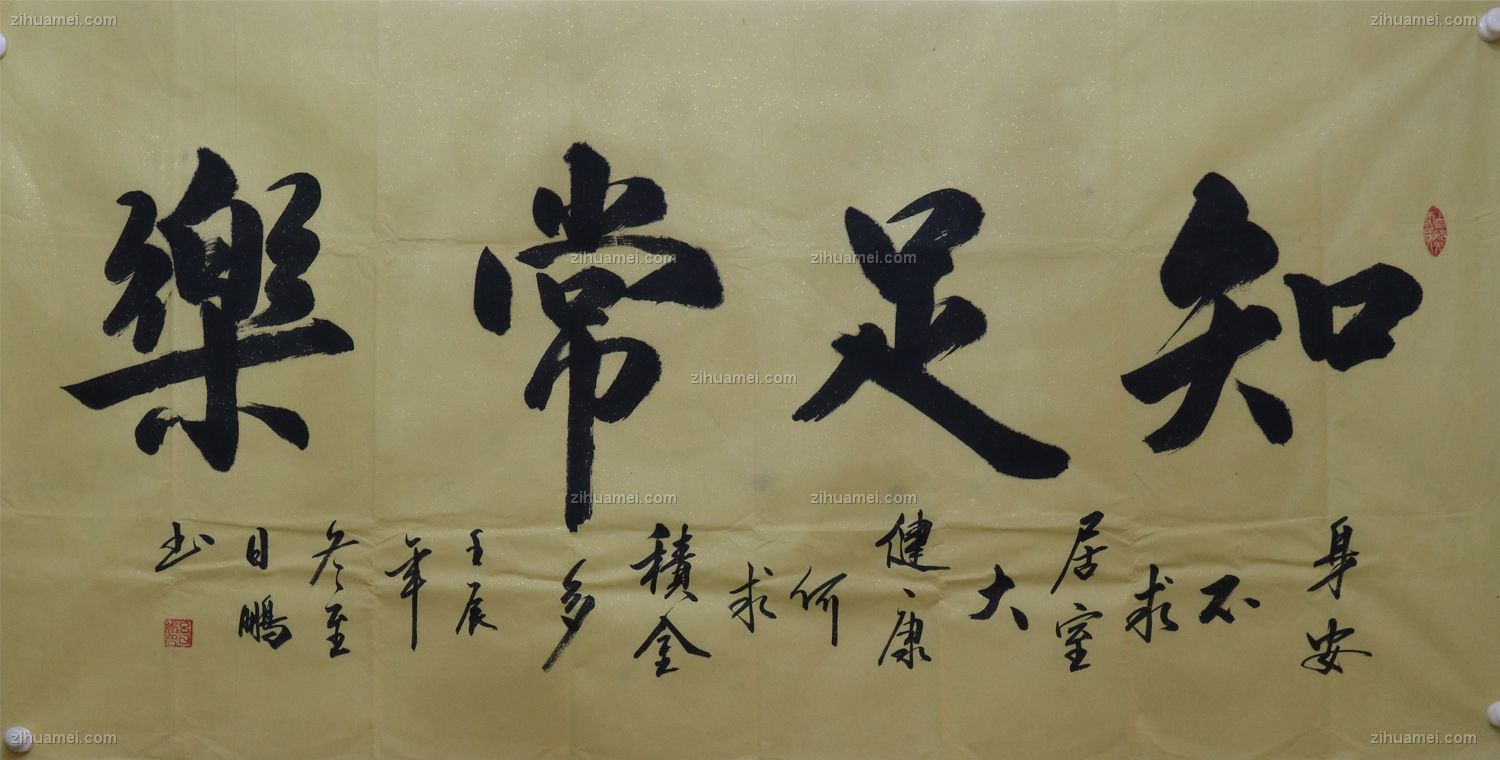 知足常樂
身安不求居室大
健康何求積金多
壬辰年冬至日鵬书
zihuamei.com
zihuamei.com
zihuamei.com
zihuamei.com
zihuamei.com
zihuamei.com
zihuamei.com
zihuamei.com
zihuamei.com